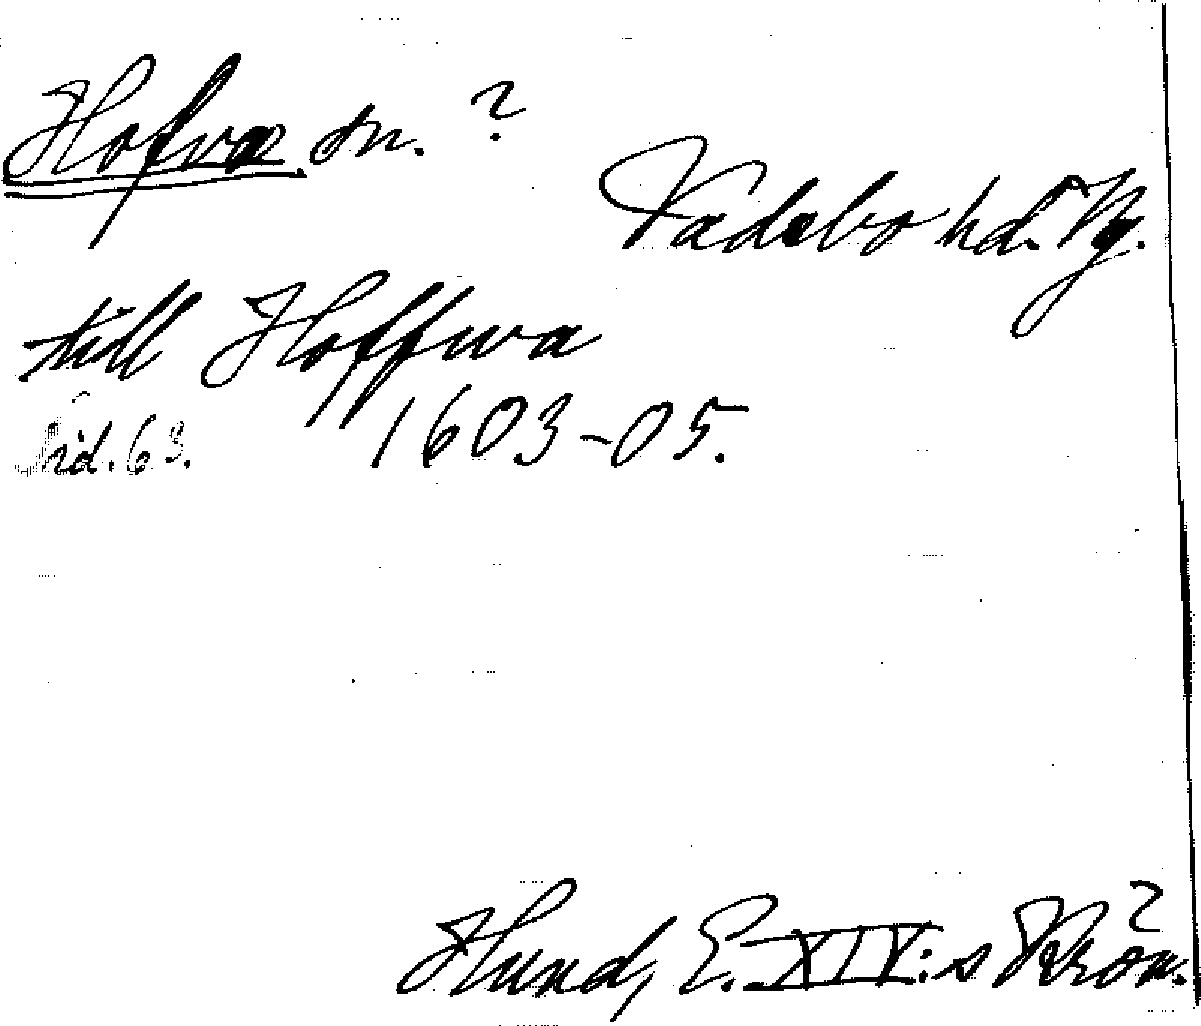 Hofva sn. ?
Vadsbo hd. Vg.
till Hoffwa
Avid. 63. 1603-05.
Hund, E. XIV:s Krön.